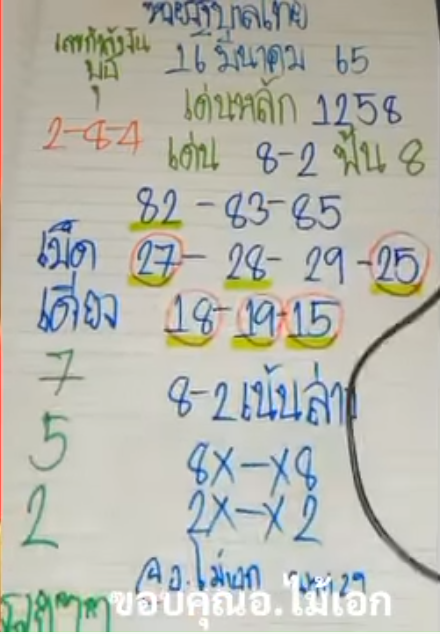 หวยรัฐบาลไทย
เลขกำลังวัน
พุธ
16 มีนาคม 65
2-8-4
เด่นหลัก 1258
เด่น 8-2 ฟัน 8
82 - 83 - 85
เม็ด
เดียว
27 - 28 - 29 - 25
18 - 19 - 15
7
5
2
8-2 เน้นล่าง
8X-X8
2X-X2
อ.ไม้เอก
ขอบคุณอ.ไม้เอก